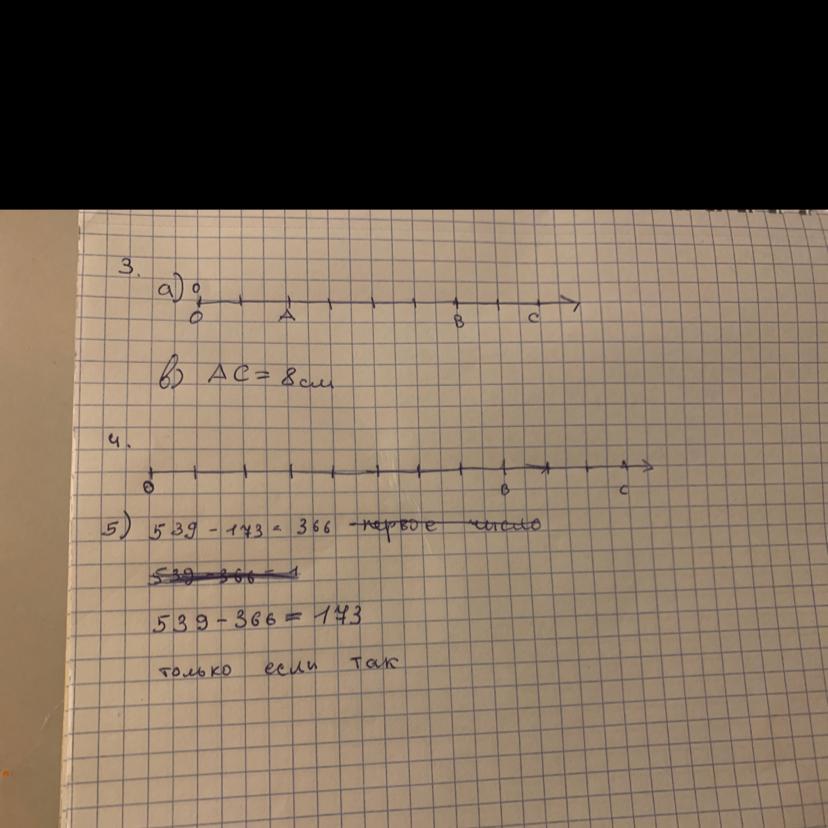 3.
а) 0
O A B C
в) AC = 8 см
4.
O B C
5) 539 - 173 = 366 первое число
539 - 366 = 1
539 - 366 = 173
только если так